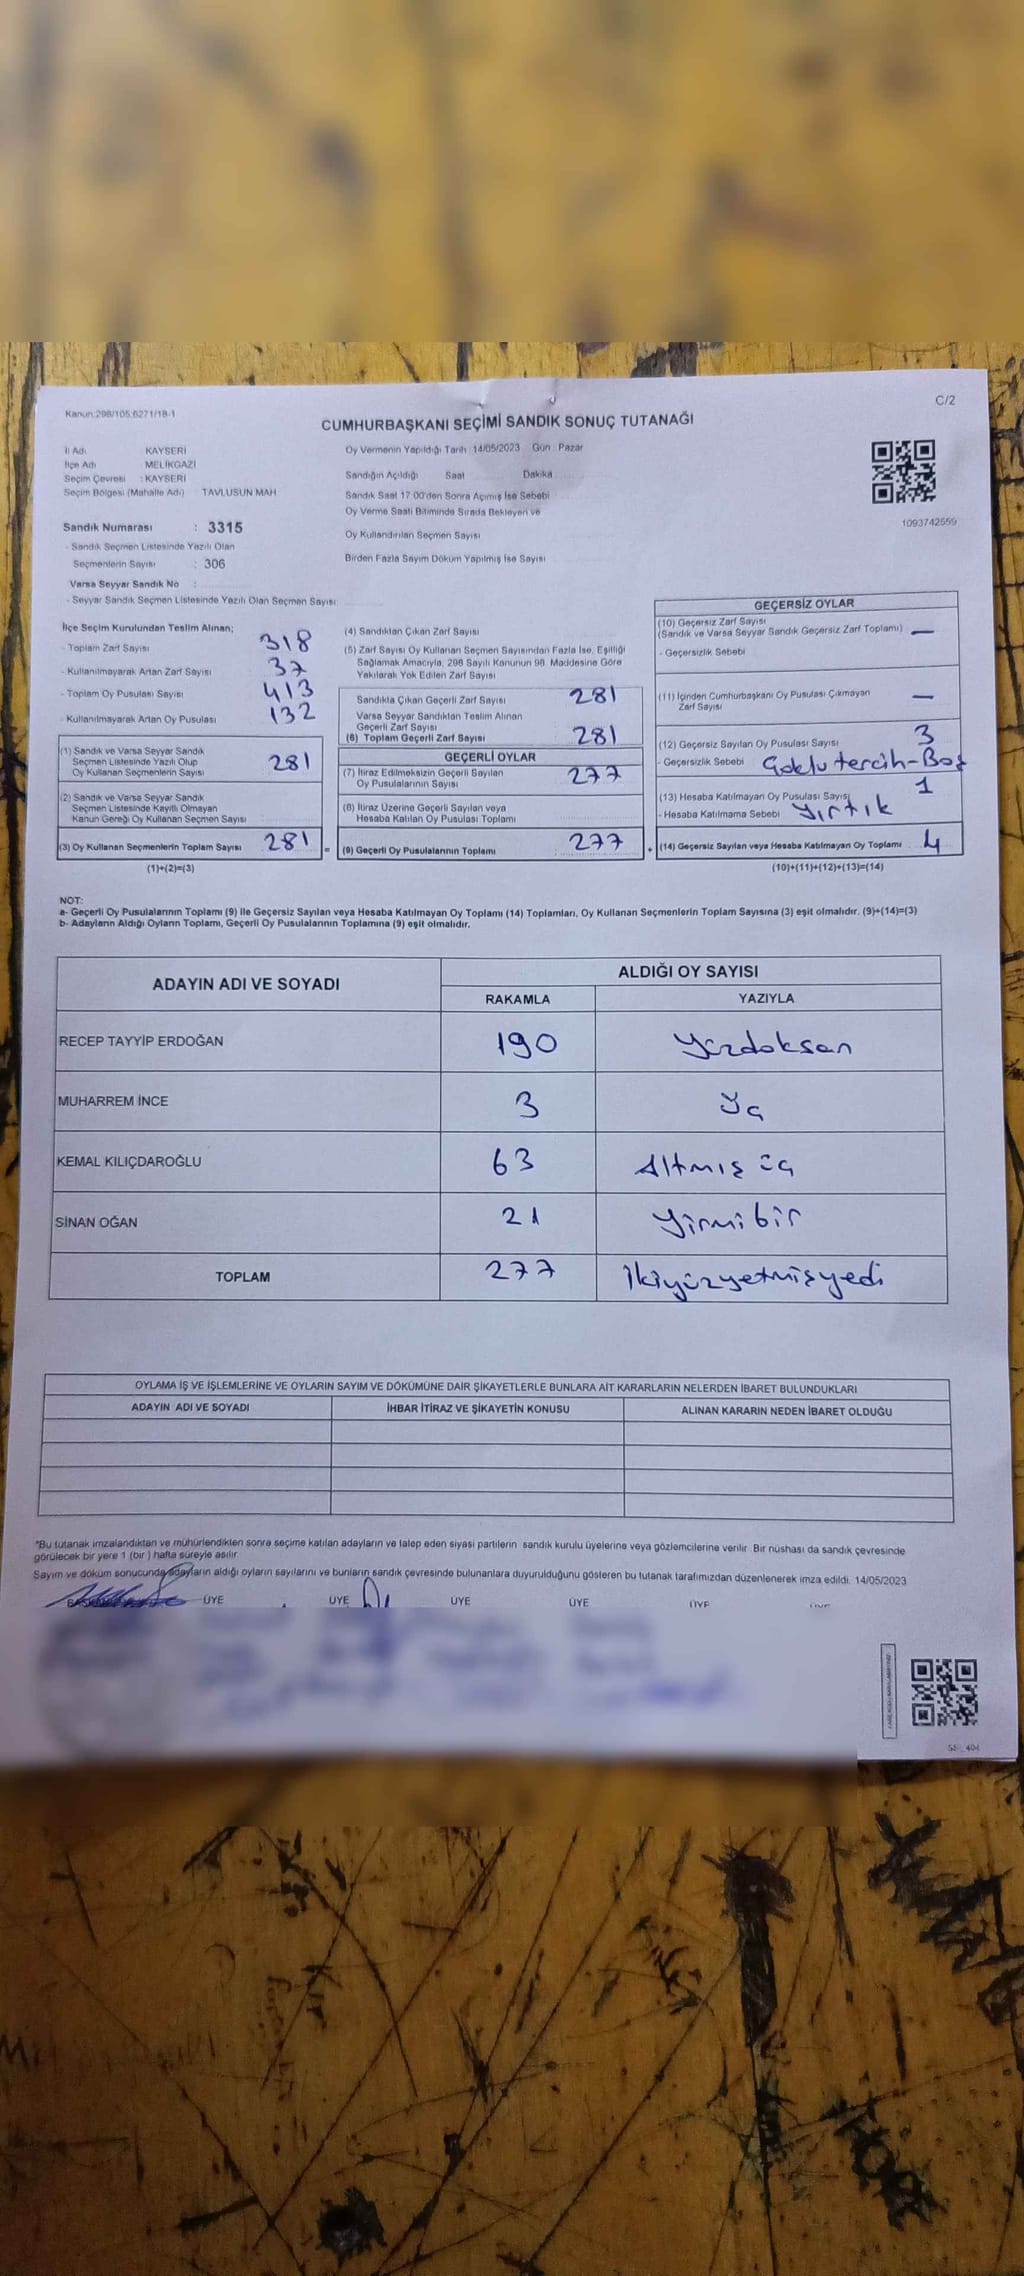 Kanun:298/105,6271/18-1
C/2
CUMHURBAŞKANI SEÇİMİ SANDIK SONUÇ TUTANAĞI
İl Adı KAYSERİ
İlçe Adı MELİKGAZİ
Seçim Çevresi : KAYSERİ
Seçim Bölgesi (Mahalle Adı) : TAVLUSUN MAH
Oy Vermenin Yapıldığı Tarih : 14/05/2023 Gün : Pazar
Sandığın Açıldığı Saat Dakika
Sandık Saat 17 00'den Sonra Açmış İse Sebebi
Oy Verme Saati Bitiminde Sırada Bekleyen ve
Oy Kullandırılan Seçmen Sayısı
Birden Fazla Sayım Döküm Yapılmış İse Sayısı
1093742559
Sandık Numarası : 3315
- Sandık Seçmen Listesinde Yazılı Olan
Seçmenlerin Sayısı : 306
Varsa Seyyar Sandık No :
- Seyyar Sandık Seçmen Listesinde Yazılı Olan Seçmen Sayısı
İlçe Seçim Kurulundan Teslim Alınan;
- Toplam Zarf Sayısı 318
- Kullanılmayarak Artan Zarf Sayısı 37
- Toplam Oy Pusulası Sayısı 413
- Kullanılmayarak Artan Oy Pusulası 132
(1) Sandık ve Varsa Seyyar Sandık
Seçmen Listesinde Yazılı Olup
Oy Kullanan Seçmenlerin Sayısı 281
(2) Sandık ve Varsa Seyyar Sandık
Seçmen Listesinde Kayıtlı Olmayan
Kanun Gereği Oy Kullanan Seçmen Sayısı
(3) Oy Kullanan Seçmenlerin Toplam Sayısı 281 =
(1)+(2)=(3)
(4) Sandıktan Çıkan Zarf Sayısı
(5) Zarf Sayısı Oy Kullanan Seçmen Sayısından Fazla İse, Eşitliği
Sağlamak Amacıyla, 298 Sayılı Kanunun 98. Maddesine Göre
Yakılarak Yok Edilen Zarf Sayısı
Sandıkta Çıkan Geçerli Zarf Sayısı 281
Varsa Seyyar Sandıktan Teslim Alınan
Geçerli Zarf Sayısı
(6) Toplam Geçerli Zarf Sayısı 281
GEÇERLİ OYLAR
(7) İtiraz Edilmeksizin Geçerli Sayılan
Oy Pusulalarının Sayısı 277
(8) İtiraz Üzerine Geçerli Sayılan veya
Hesaba Katılan Oy Pusulası Toplamı
(9) Geçerli Oy Pusulalarının Toplamı 277 +
GEÇERSİZ OYLAR
(10) Geçersiz Zarf Sayısı
(Sandık ve Varsa Seyyar Sandık Geçersiz Zarf Toplamı) —
- Geçersizlik Sebebi
(11) İçinden Cumhurbaşkanı Oy Pusulası Çıkmayan
Zarf Sayısı —
(12) Geçersiz Sayılan Oy Pusulası Sayısı 3
- Geçersizlik Sebebi Çoklu tercih-Boş
(13) Hesaba Katılmayan Oy Pusulası Sayısı 1
- Hesaba Katılmama Sebebi Yırtık
(14) Geçersiz Sayılan veya Hesaba Katılmayan Oy Toplamı 4
(10)+(11)+(12)+(13)=(14)
NOT:
a- Geçerli Oy Pusulalarının Toplamı (9) ile Geçersiz Sayılan veya Hesaba Katılmayan Oy Toplamı (14) Toplamları, Oy Kullanan Seçmenlerin Toplam Sayısına (3) eşit olmalıdır. (9)+(14)=(3)
b- Adayların Aldığı Oyların Toplamı, Geçerli Oy Pusulalarının Toplamına (9) eşit olmalıdır.
ADAYIN ADI VE SOYADI ALDIĞI OY SAYISI
RAKAMLA YAZIYLA
RECEP TAYYİP ERDOĞAN 190 Yüzdoksan
MUHARREM İNCE 3 Üç
KEMAL KILIÇDAROĞLU 63 Altmış üç
SİNAN OĞAN 21 Yirmibir
TOPLAM 277 İkiyüzyetmişyedi
OYLAMA İŞ VE İŞLEMLERİNE VE OYLARIN SAYIM VE DÖKÜMÜNE DAİR ŞİKAYETLERLE BUNLARA AİT KARARLARIN NELERDEN İBARET BULUNDUKLARI
ADAYIN ADI VE SOYADI İHBAR İTİRAZ VE ŞİKAYETİN KONUSU ALINAN KARARIN NEDEN İBARET OLDUĞU
*Bu tutanak imzalandıktan ve mühürlendikten sonra seçime katılan adayların ve talep eden siyasi partilerin sandık kurulu üyelerine veya gözlemcilerine verilir. Bir nüshası da sandık çevresinde
görülecek bir yere 1 (bir ) hafta süreyle asılır.
Sayım ve döküm sonucunda adayların aldığı oyların sayılarını ve bunların sandık çevresinde bulunanlara duyurulduğunu gösteren bu tutanak tarafımızdan düzenlenerek imza edildi. 14/05/2023
BAŞKAN ÜYE ÜYE ÜYE ÜYE ÜYE